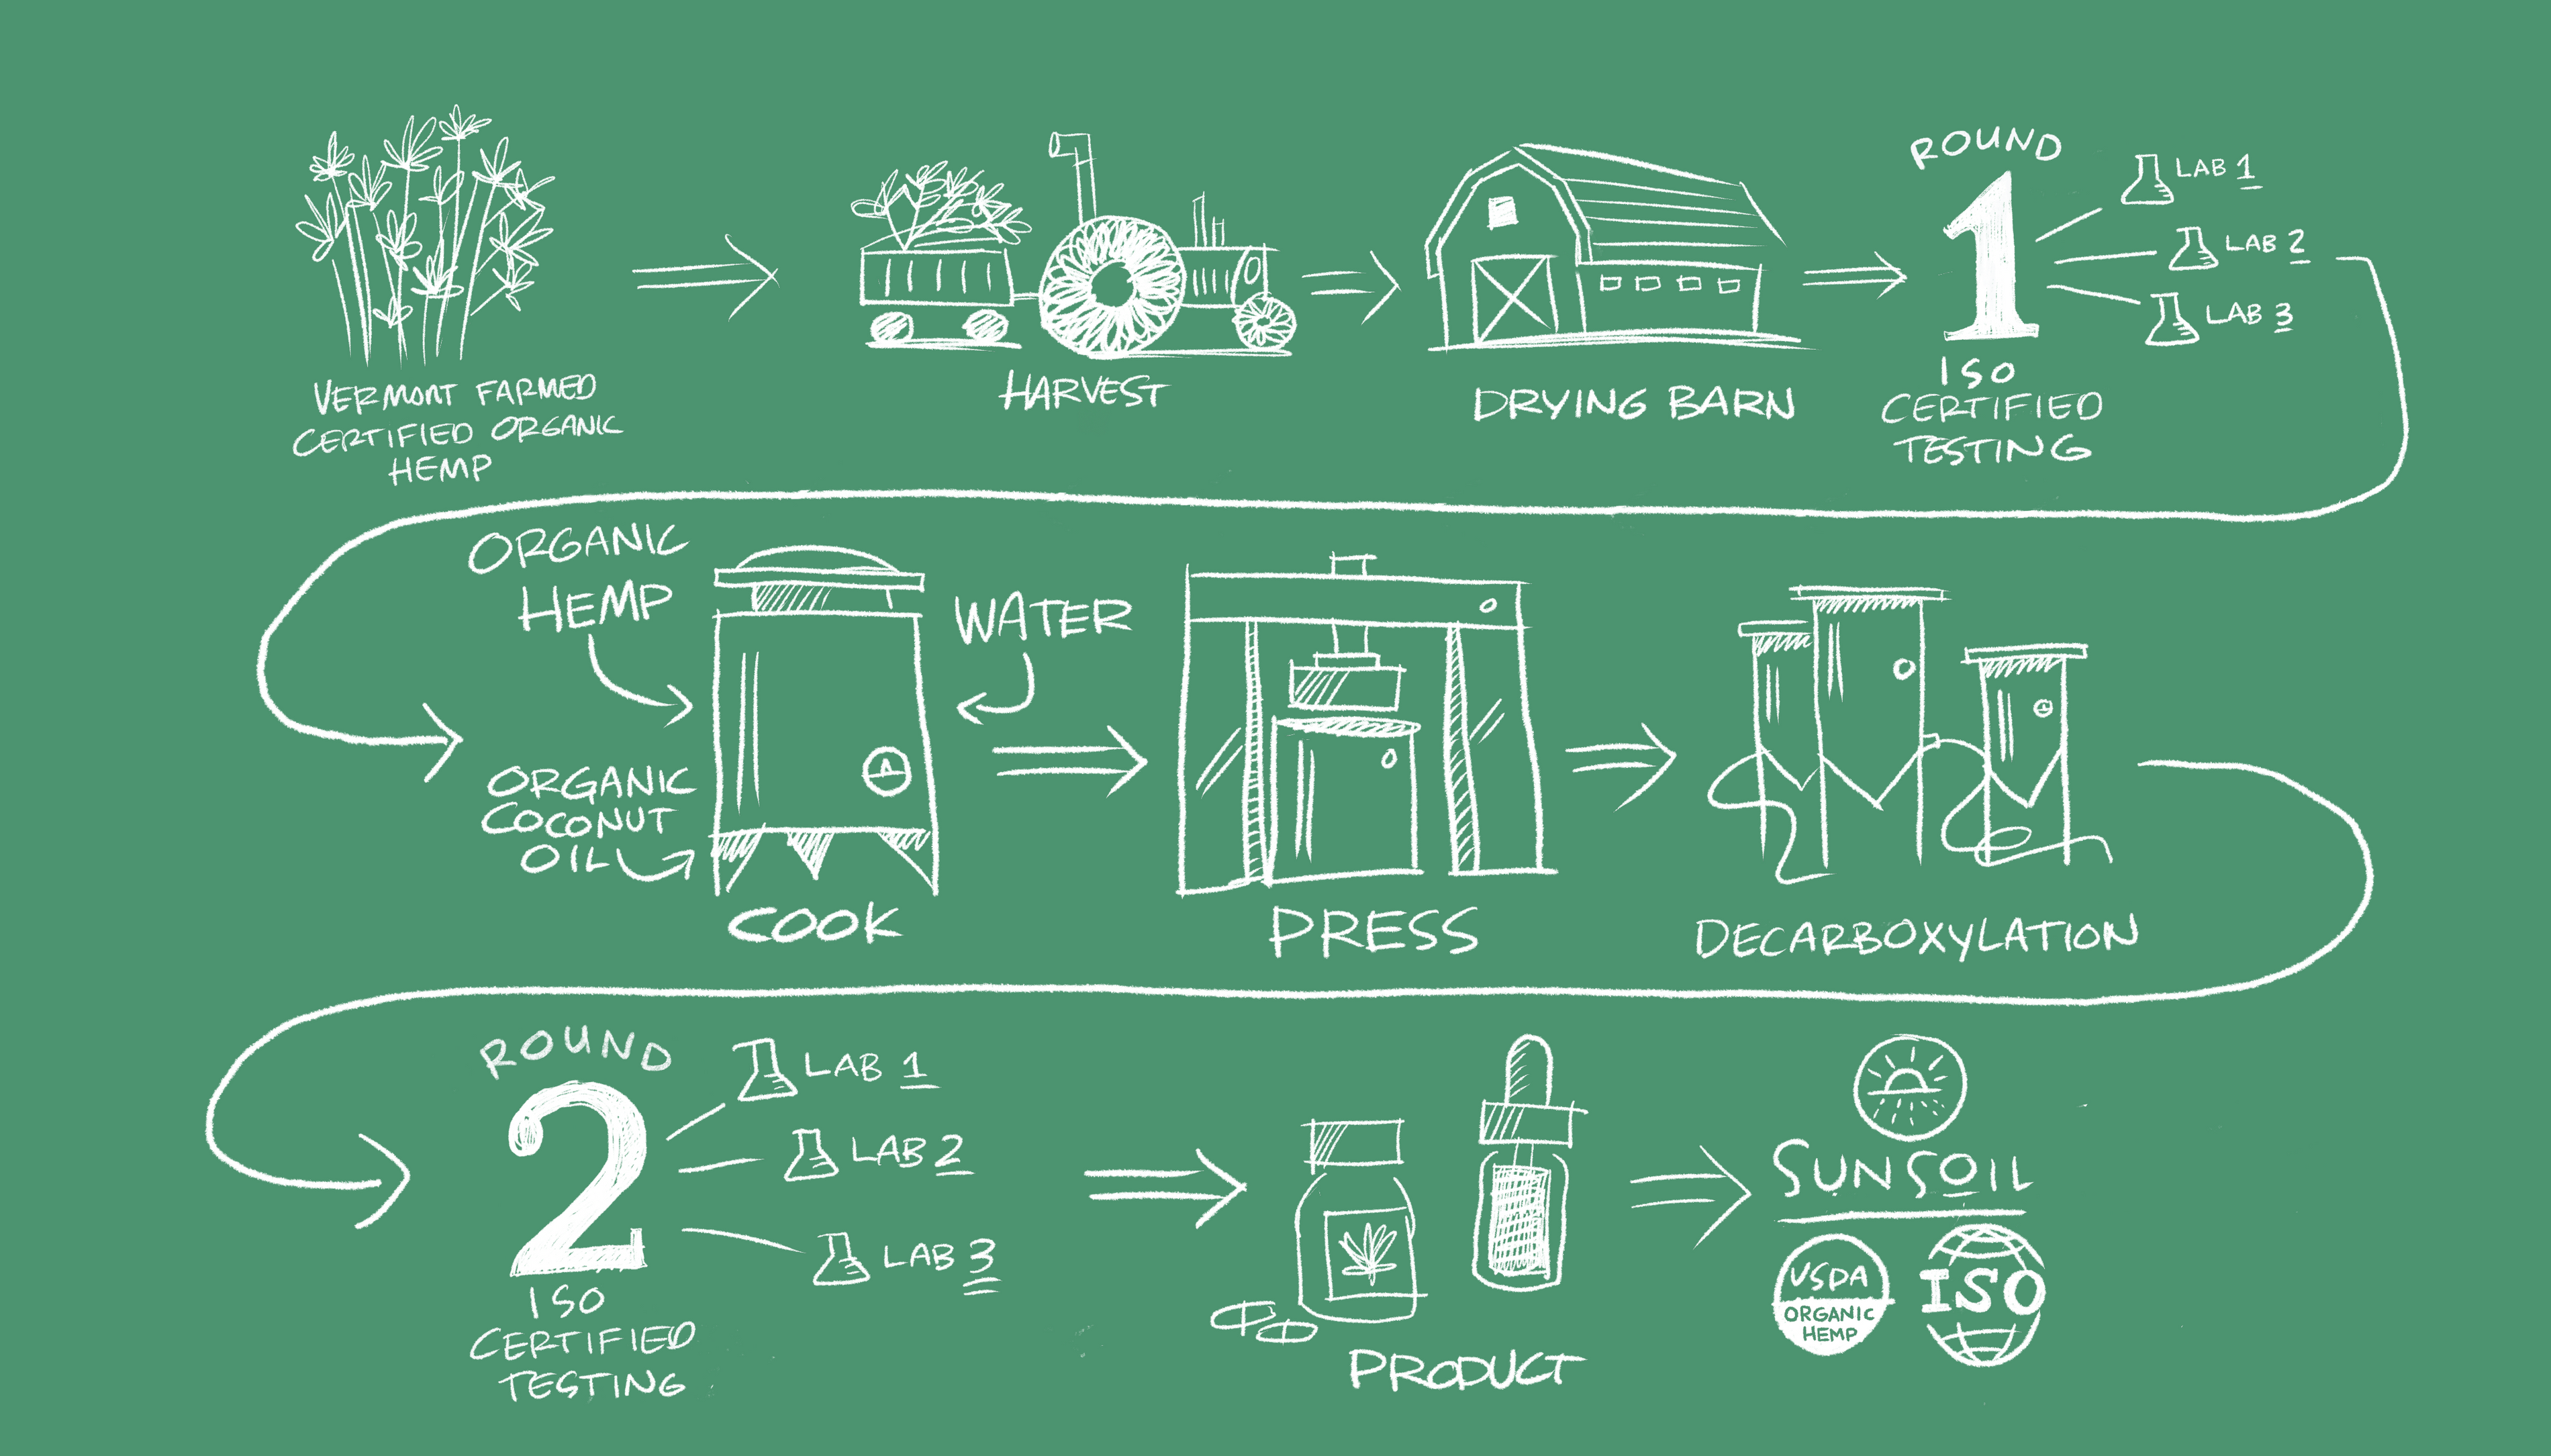 VERMONT FARMED
CERTIFIED ORGANIC
HEMP
HARVEST
DRYING BARN
ROUND
1
ISO
CERTIFIED
TESTING
LAB 1
LAB 2
LAB 3
ORGANIC
HEMP
WATER
ORGANIC
COCONUT
OIL
COOK
PRESS
DECARBOXYLATION
ROUND
2
ISO
CERTIFIED
TESTING
LAB 1
LAB 2
LAB 3
PRODUCT
SUNSOIL
USDA
ORGANIC
HEMP
ISO